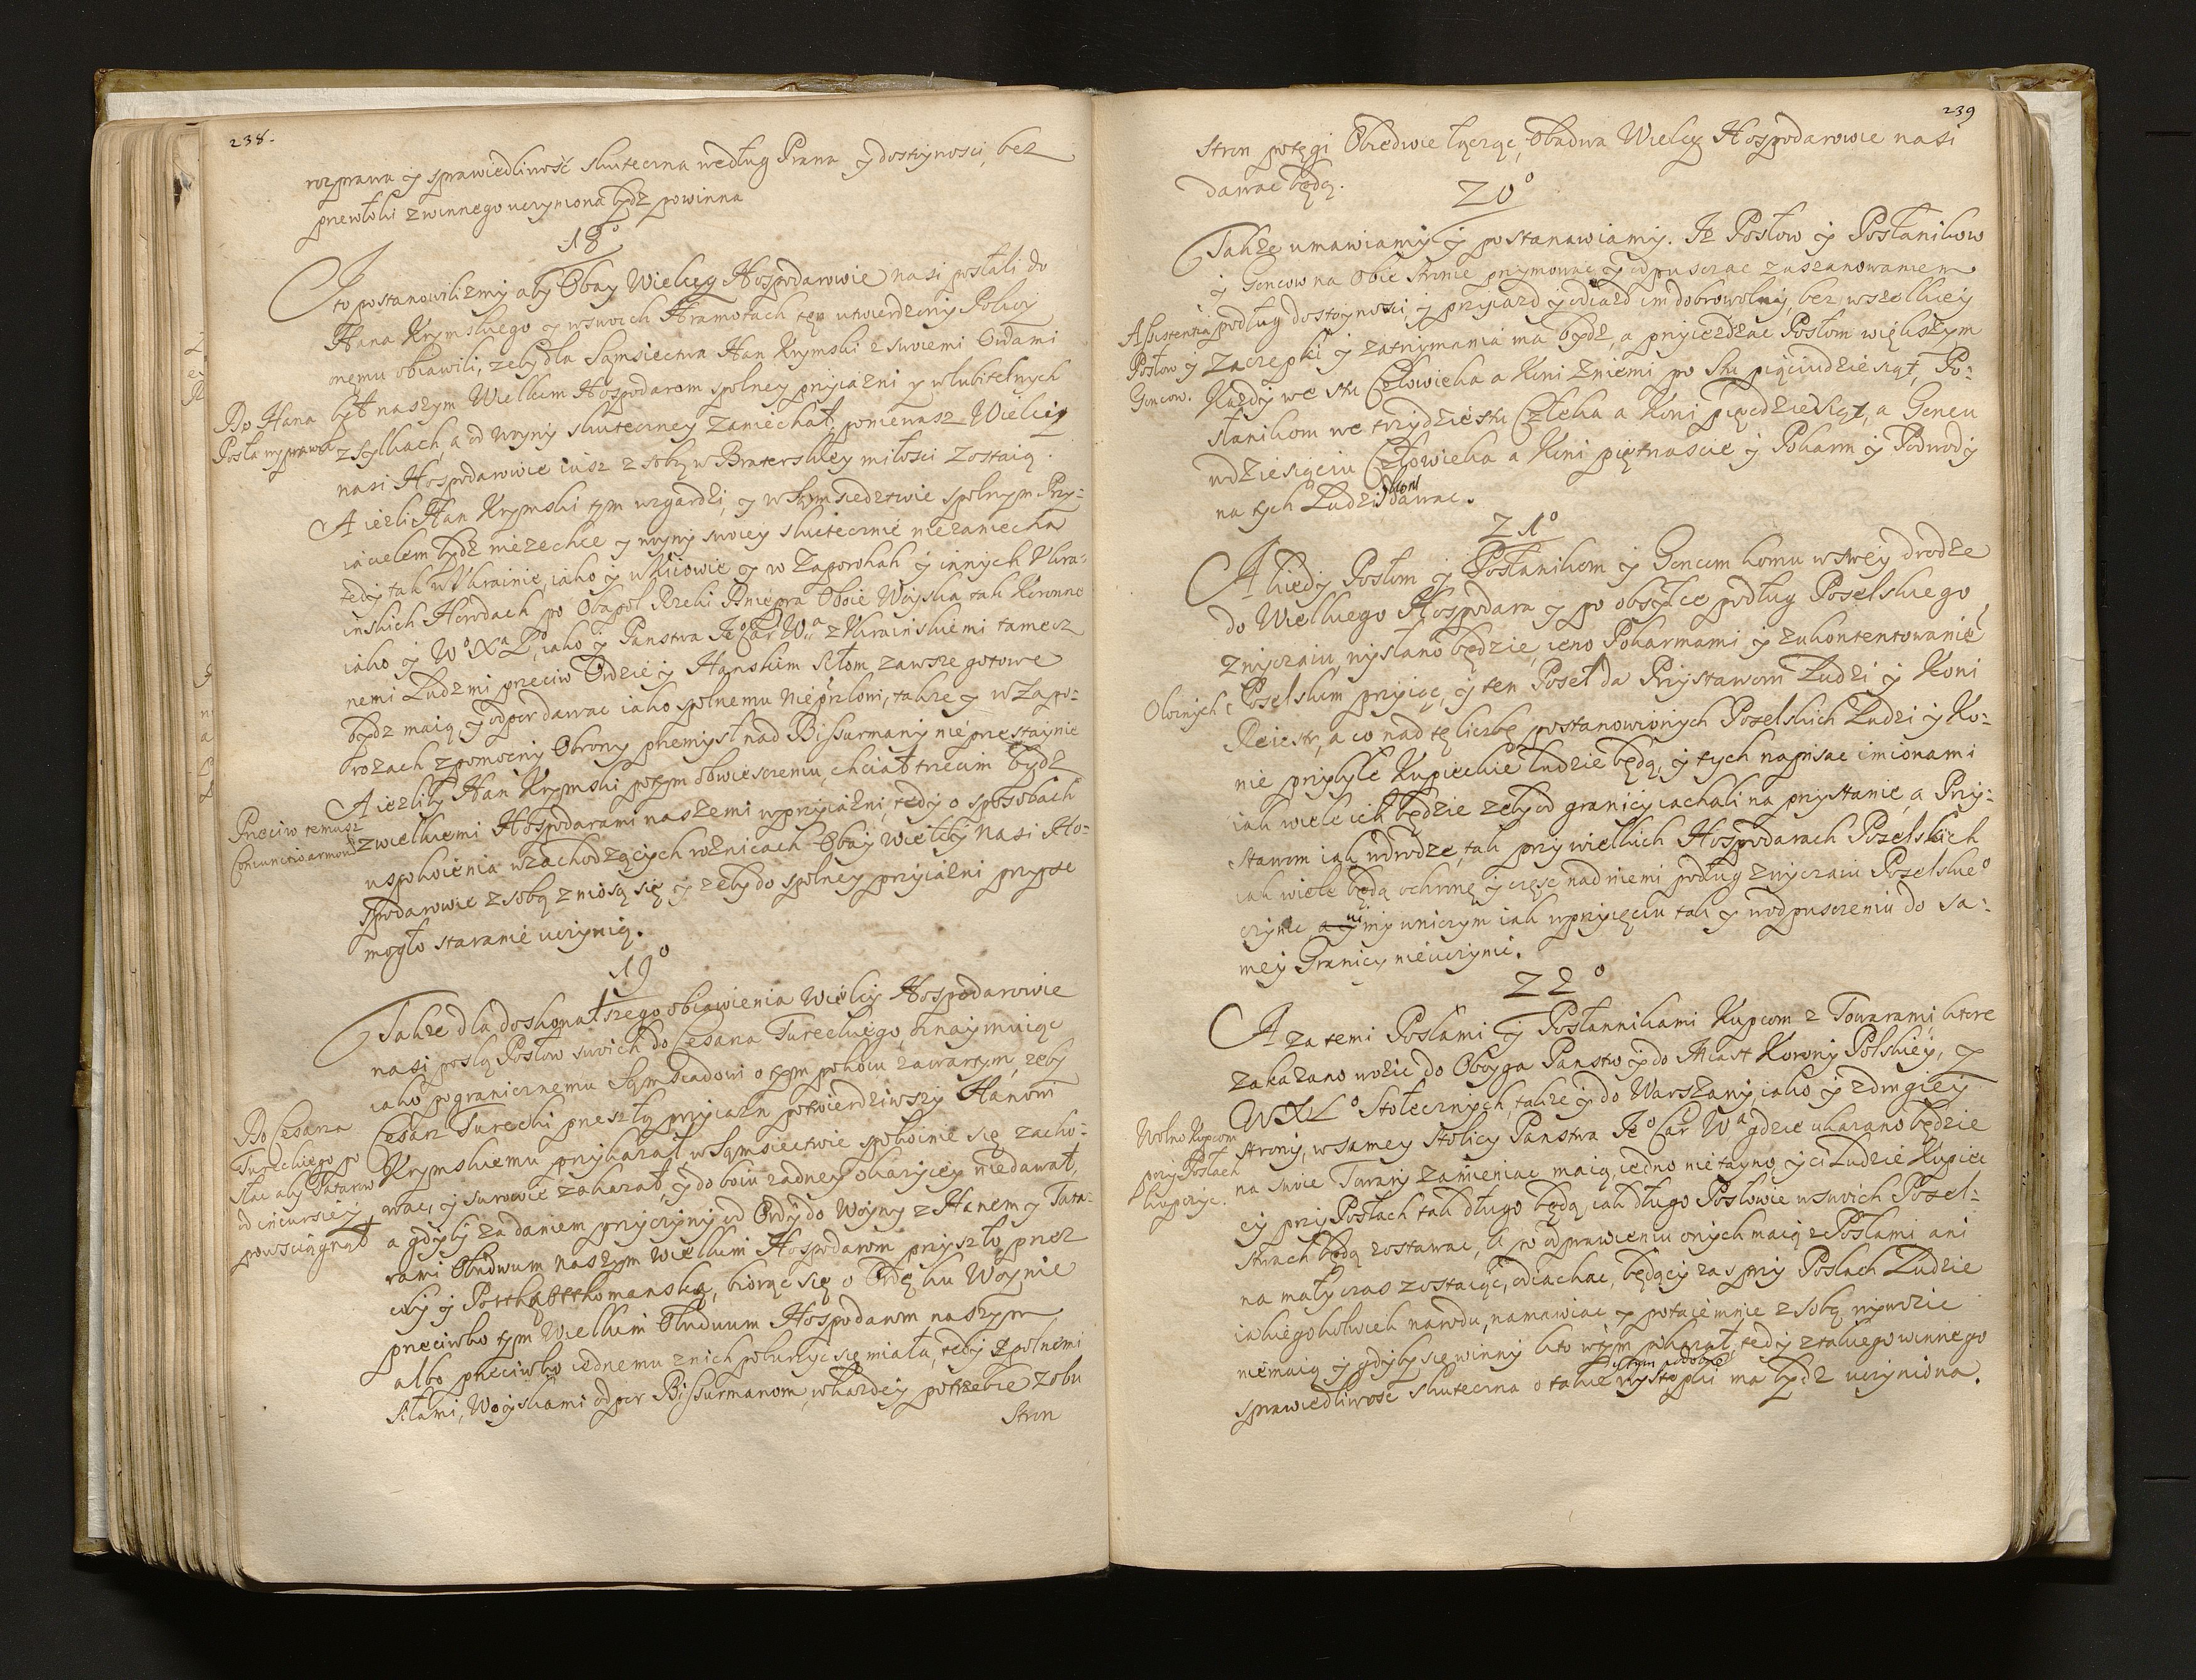 238.
rozprawa y sprawiedliwość skuteczna według Prawa y dostoynosci, bez
przewłoki z winnego uczyniona bydz powinna
18°
I to postanowilizmy aby Obay Wielcy Hospodarowie nasi posłali do
Hana Krymskiego y w swoich Hramotach ten utwierdzony Pokoy
onemu obiawili, zeby dla Sąmsiectwa Han Krymski z swiemi Ordami
Do Hana
Posła wyprawić
był naszym Wielkim Hospodarom spolney przyiazni y w lubitelnych
zsyłkach, a od woyny skuteczney zaniechał, poniewasz Wielcy
nasi Hospodarowie iusz z sobą w Braterskiey miłosci zostaią.
A iezli Han Krymski tym wzgardzi, y w Sąmsiedztwie spolnym Przy-
iacielem bydz niezechce y woyny swoiey skutecznie niezaniecha
tedy tak w Ukrainie, iako y w Kiiowie y w Zaporohah y innych Ukra-
inskich Horodach po Obapol Rzeki Dniepra Oboie Woyska tak Koronne
iako y W° X° L°, iako y Panstwa Je° Car W° z Ukrainskiemi tamecz
nemi Ludzmi przeciw Ordzie y Hanskim siłom zawsze gotowe
bydz maią y odpor dawac iako spolnemu Nieprzlowi, takze y w Zapo-
rozach z pomocny Obrony przemysł nad Bissurmany nieprzestaynie
Przeciw temusz
Coniunctio armorum
A iezliby Han Krymski potym obwieszczeniu, chciał trzecim bydz
z wielkiemi Hospodarami naszemi w przyiazni, tedy o sposobach
uspokoienia w zachodzących roznicach Obay Wielcy Nasi Ho-
spodarowie z sobą zniosą się y zeby do spolney przyiazni przyse
mogło staranie uczynią.
19°
Takze dla doskonałszego obiawienia Wielcy Hospodarowie
nasi poslą Posłow swoich do Cesarza Tureckiego, oznaymuiąc
iako pogranicznemu Sąmsiadowi o tym pokoiu zawartym, zeby
Do Cesarza
Tureckiego po
słac aby Tatarow
od incursiey
powsciągnął
Cesarz Turecki przeszłą przyiazn potwierdziwszy Hanowi
Krymskiemu przykazał w Sąmsiectwie spokoinie się zacho-
wac, y surowie zakazał, y do boiu zadney okazyiey niedawał,
a gdyby zadaniem przyczyny od Ordy do Woyny z Hanem y Tata-
rami Obudwum naszym Wielkim Hospodarom przyszło, przez
coby y Porthą Otthomanską, biorąc się o Ordę ku Woynie
przeciwko tym Wielkim Obudwum Hospodarom naszym
albo przeciwko iednemu z nich poburzyc się miała, tedy spolnemi
Siłami, Woyskami odpor Bissurmanom, w kazdey potrzebie z obu
Stron
239
stron potęgi Obiedwie łącząc, Obadwa Wielcy Hospodarowie nasi
dawac będą.
20°
Takze umawiamy y postanawiamy. Iz Posłow y Posłanikow
y Goncow na Obie stronie przymowac y odpuszczac z uszanowaniem
Assistentia
Posłow y
Goncow.
podług dostoynosci, y przyiazd y odiazd im dobrowolny, bez wszelkiey
zaczepki y zatrzymania ma bydz, a przyiezdzac Posłom większym
Kazdy we stu Człowieka a Koni z niemi po stu pięciudziesiąt, Po-
słanikom we trzydziestu Człeka a Koni pięcdziesiąt, a Goncu
w dziesięciu Człowieka a Koni piętnascie y Pokarm y Podwody
na tych Ludzi y koni dawac.
21°
A kiedy Posłom y Posłanikom y Goncom komu w swey drodze
do Wielkiego Hospodara y po obsyłce podług Poselskiego
zwyczaiu, wysłano będzie, ieno Pokarmami y zukontentowanie
Poselskim przyiąc, y ten Poseł da Przystawom Ludzi y Koni
Reiestr, a co nad tę liczbę postanowionych Poselskich Ludzi y Ko-
nie przybyłe Kupieckie ludzie będą, y tych napisac imionami
iak wiele ich będzie zeby od granicy iachali na przystanie, a Przy-
stawom iak w drodze, tak przy wielkich Hospodarach Poselskich
iak wiele będą ochronę y częsc nad niemi podług zwyczaiu Poselskie°
czynic a y w niczym iak w przyięciu tak y w odpuszczeniu do sa-
mey Granicy nieuczynic.
22°
A za temi Posłami y Posłannikami Kupcom z Towarami, ktore
zakazano wozic do Oboyga Panstw y do Miast Korony Polskiey, y
WXL° Stołecznych, takze y do Warszawy, iako y z drugiey
Wolno Kupcom
przy Posłach
kupczyc.
strony, w samey stolicy Panstwa Je° Car W° gdzie ukazano będzie
na swoie Towary zamieniac maią, iedno nie tayno, y ci Ludzie Kupiec
cy przy Posłach tak długo będą, iak długo Posłowie w swoich Posel-
stwach będą zostawac, a po odprawieniu onych maią z Posłami ani
na mały czas zostaiąc, odiachac, będący zas przy Posłach Ludzie
iakiegokolwiek narodu, namawiac, y potaiemnie z sobą wywozic
niemaią y gdyby się winny kto w tym pokazał, tedy z takiego winnego
sprawiedliwosc skuteczna o takie wystempki ma bydz uczyniona.